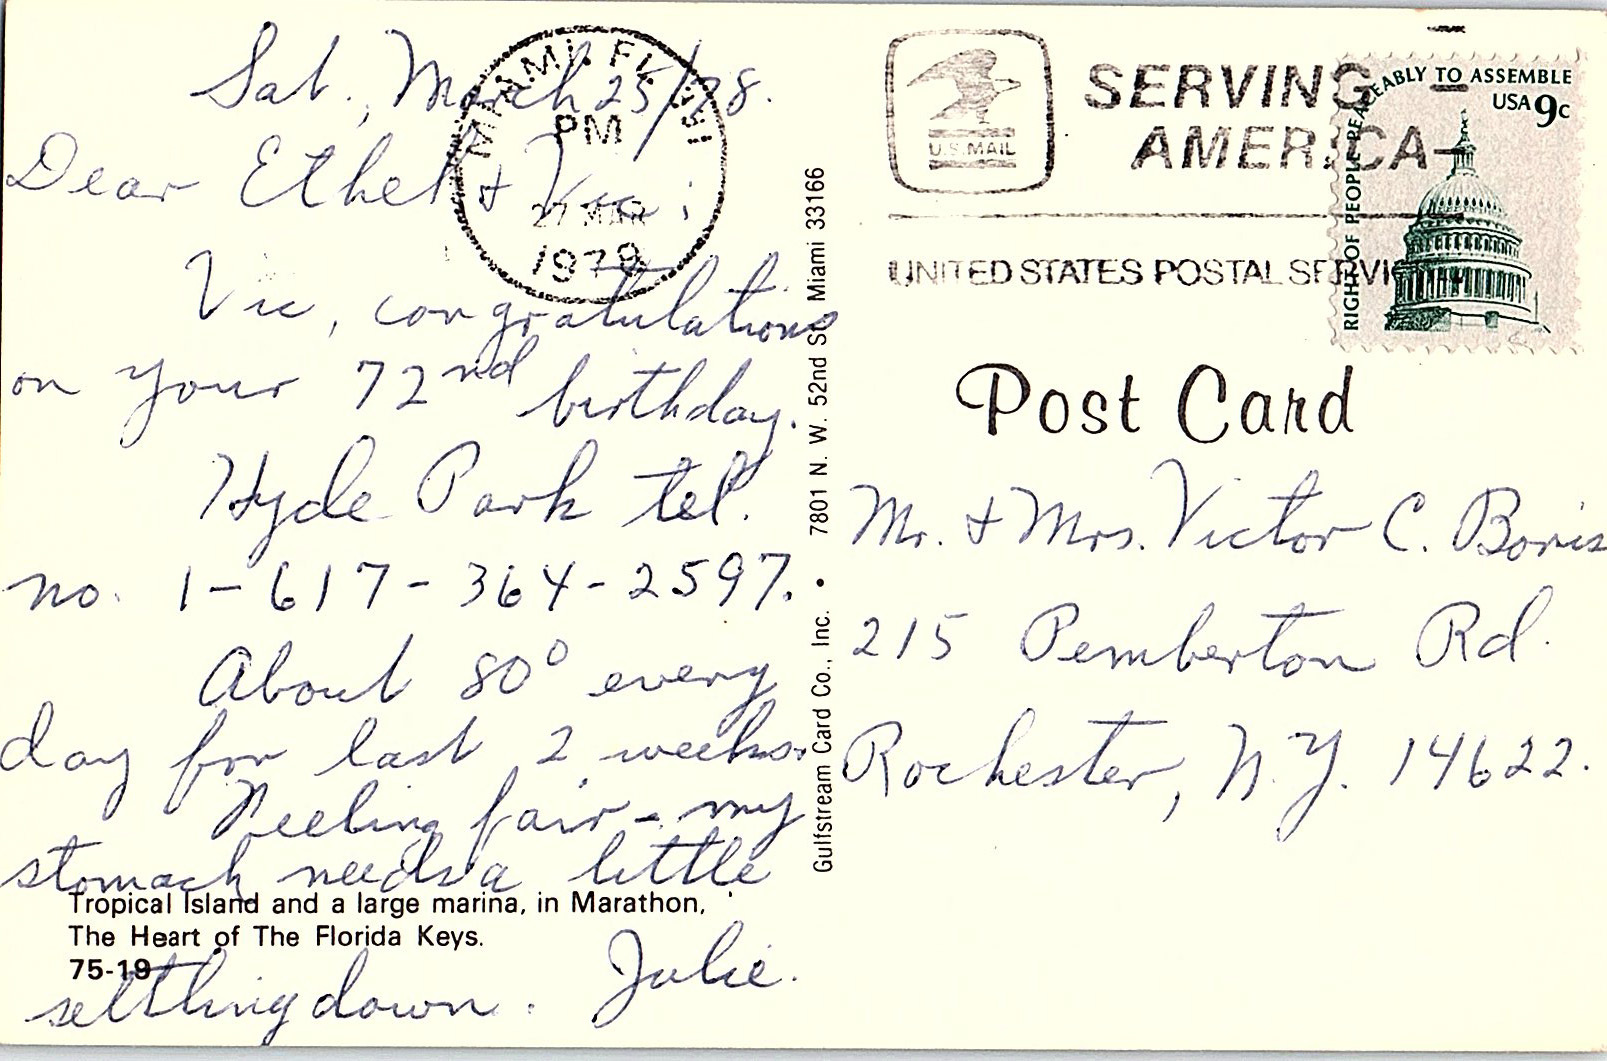 Sat., March 25/78.
Dear Ethel & Vic;
Vic, congratulations
on your 72nd birthday.
Hyde Park tel.
no. 1-617-364-2597.
About 80° every
day for last 2 weeks.
Feeling fair - my
stomach needs a little
settling down. Julie.
Tropical Island and a large marina, in Marathon,
The Heart of The Florida Keys.
75-19
MIAMI. FL 331
PM
27 MAR
1978
Gulfstream Card Co., Inc. • 7801 N. W. 52nd St. Miami 33166
U.S. MAIL
SERVING
AMERICA
UNITED STATES POSTAL SERVICE
RIGHT OF PEOPLE PEACEABLY TO ASSEMBLE
USA 9c
Post Card
Mr. & Mrs. Victor C. Boris
215 Pemberton Rd.
Rochester, N.Y. 14622.